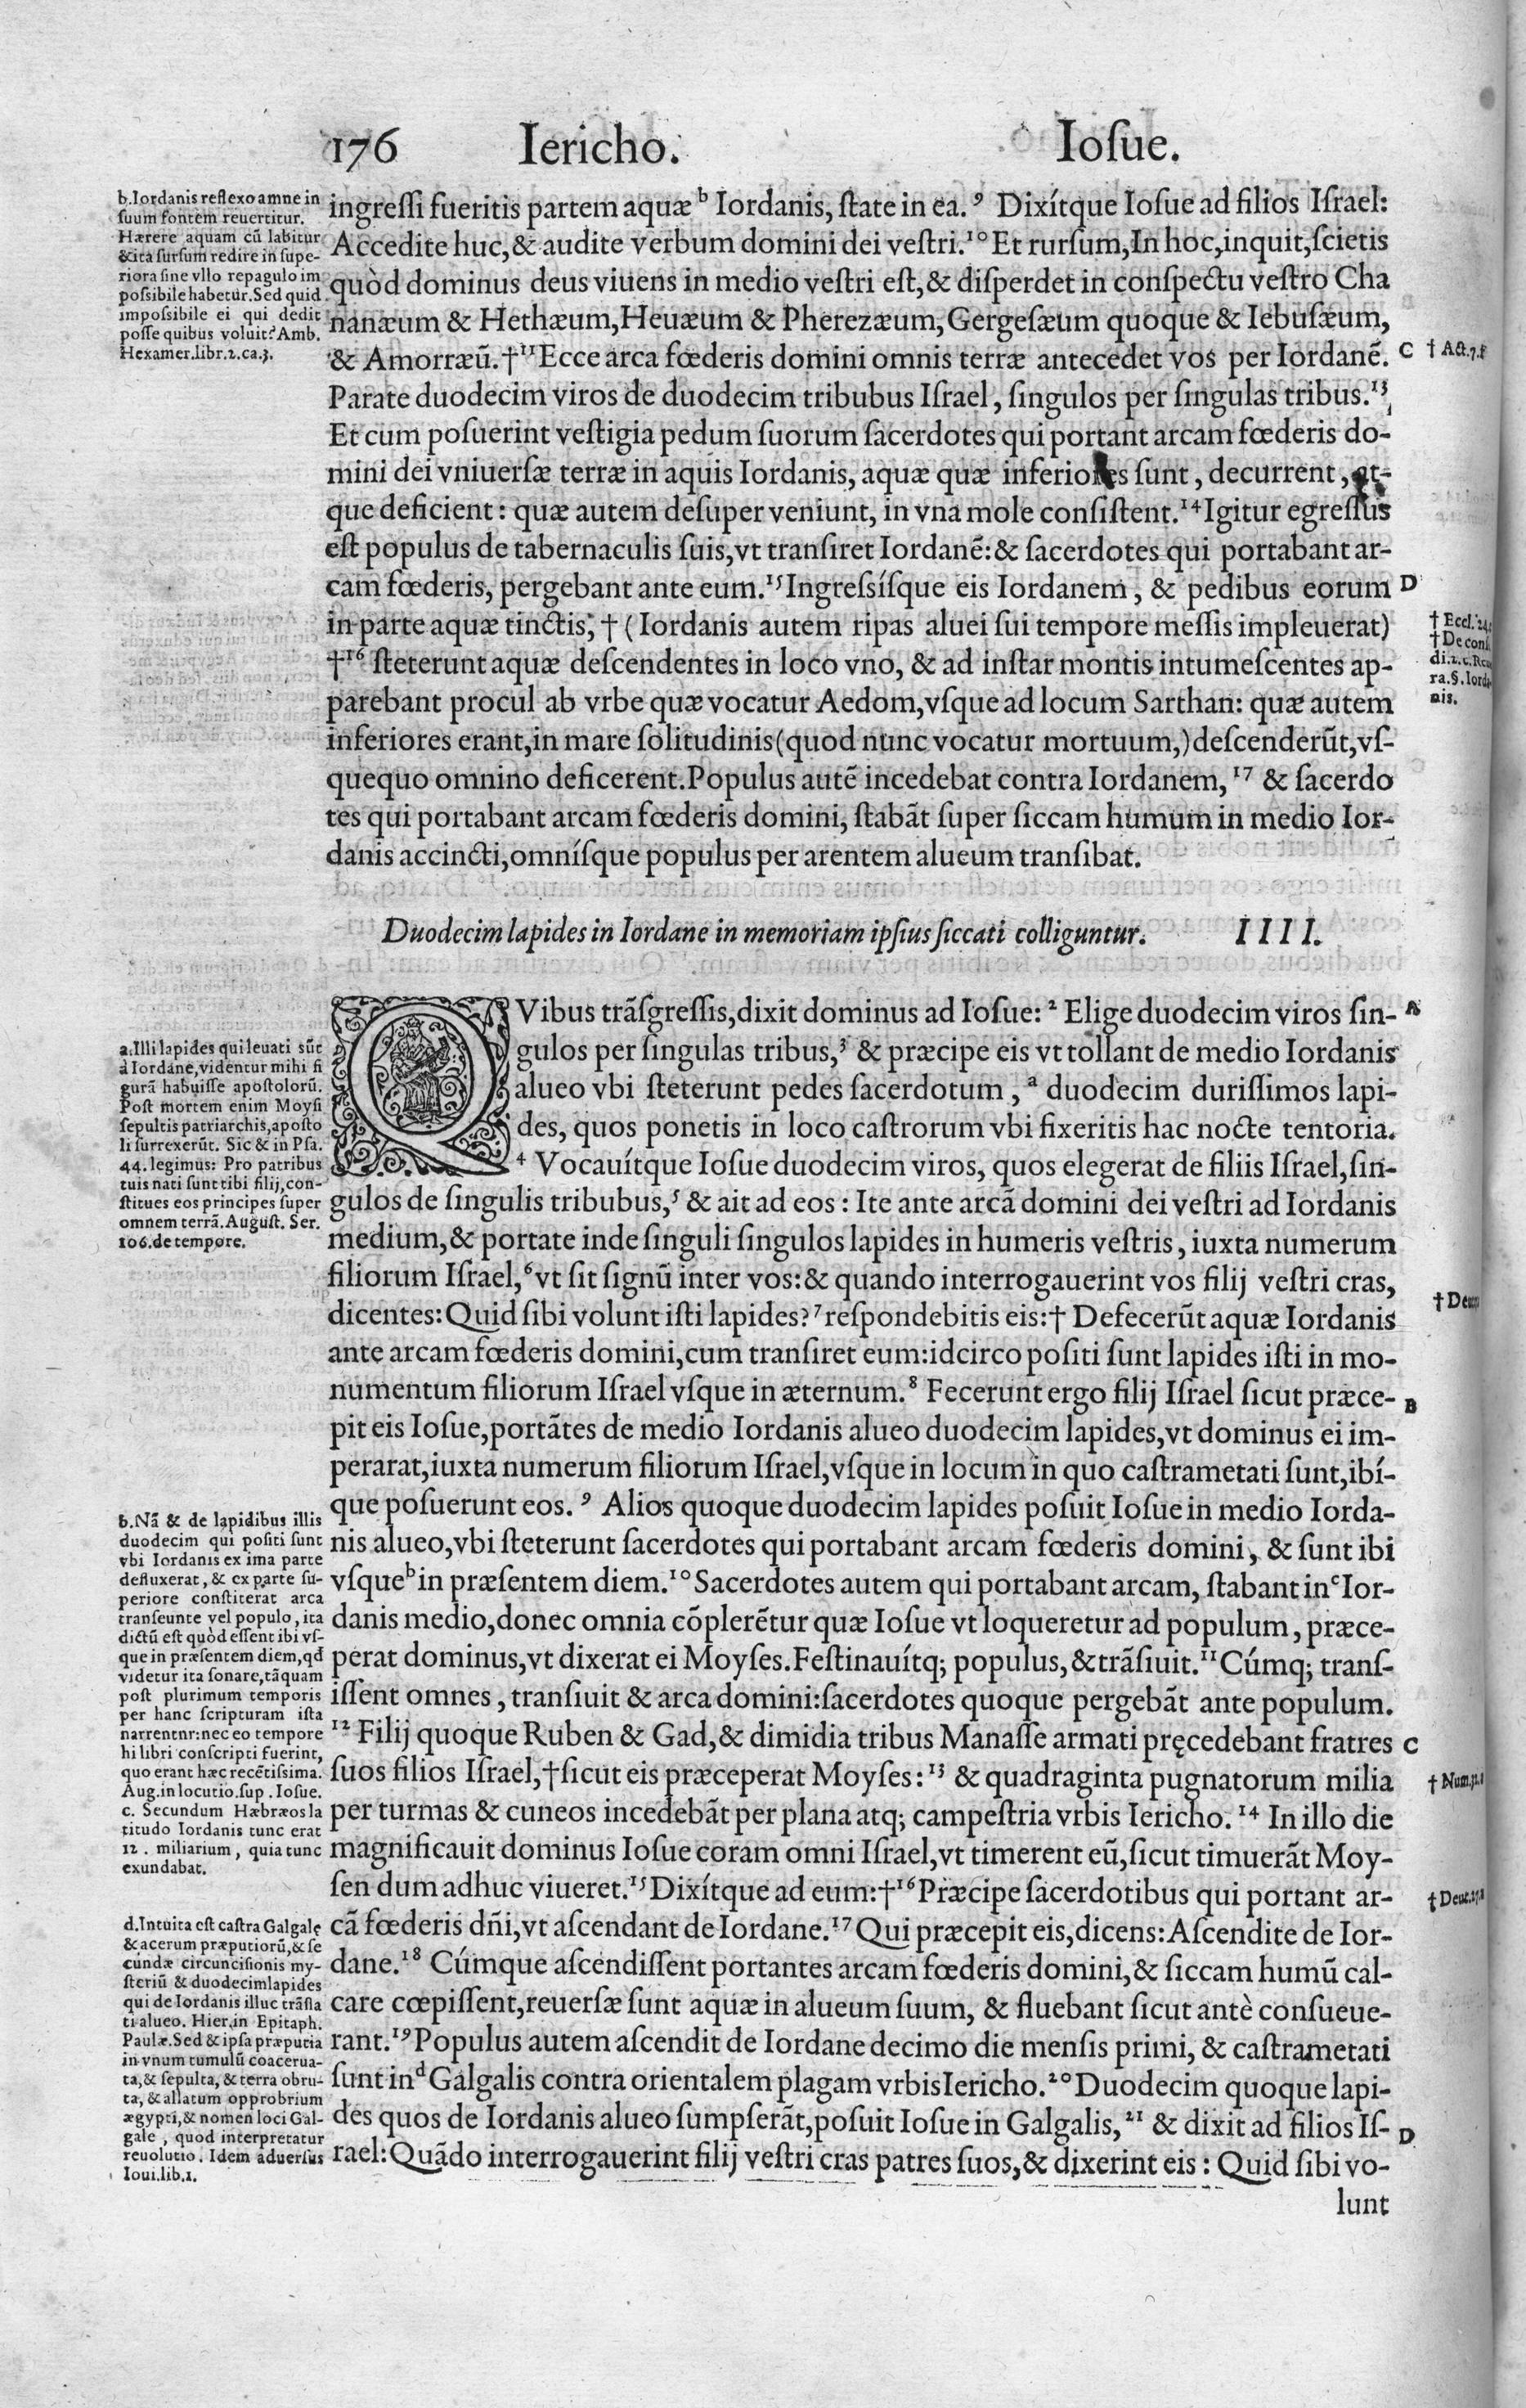 176 Iericho. Iosue.
b.Iordanis reflexo amne in
suum fontem reuertitur.
Hærere aquam cū labitur
&ita sursum redire in supe-
riora sine vllo repagulo im
possibile habetur. Sed quid
impossibile ei qui dedit
posse quibus voluit? Amb.
Hexamer.libr.2.ca.3.
ingressi fueritis partem aquæ ᵇ Iordanis, state in ea. ⁹ Dixítque Iosue ad filios Israel:
Accedite huc, & audite verbum domini dei vestri.¹⁰ Et rursum, In hoc, inquit, scietis
quòd dominus deus viuens in medio vestri est, & disperdet in conspectu vestro Cha
nanæum & Hethæum, Heuæum & Pherezæum, Gergesæum quoque & Iebusæum,
& Amorræū. †¹¹ Ecce arca fœderis domini omnis terræ antecedet vos per Iordanē. C † Act.7.f
Parate duodecim viros de duodecim tribubus Israel, singulos per singulas tribus.¹³
Et cum posuerint vestigia pedum suorum sacerdotes qui portant arcam fœderis do-
mini dei vniuersæ terræ in aquis Iordanis, aquæ quæ inferiores sunt, decurrent, at-
que deficient: quæ autem desuper veniunt, in vna mole consistent.¹⁴ Igitur egressus
est populus de tabernaculis suis, vt transiret Iordanē: & sacerdotes qui portabant ar-
cam fœderis, pergebant ante eum.¹⁵ Ingressísque eis Iordanem, & pedibus eorum D
in parte aquæ tinctis, † (Iordanis autem ripas aluei sui tempore messis impleuerat)
†¹⁶ steterunt aquæ descendentes in loco vno, & ad instar montis intumescentes ap-
parebant procul ab vrbe quæ vocatur Aedom, vsque ad locum Sarthan: quæ autem
inferiores erant, in mare solitudinis (quod nunc vocatur mortuum,) descenderūt, vs-
quequo omnino deficerent. Populus autē incedebat contra Iordanem, ¹⁷ & sacerdo
tes qui portabant arcam fœderis domini, stabāt super siccam humum in medio Ior-
danis accincti, omnísque populus per arentem alueum transibat.
† Eccl. 24.
† De cons.
di.2.c.
ra.§. Iorda
nis.
Duodecim lapides in Iordane in memoriam ipsius siccati colliguntur. IIII.
QVibus trāsgressis, dixit dominus ad Iosue: ² Elige duodecim viros sin- A
gulos per singulas tribus, ³ & præcipe eis vt tollant de medio Iordanis
alueo vbi steterunt pedes sacerdotum, ᵃ duodecim durissimos lapi-
des, quos ponetis in loco castrorum vbi fixeritis hac nocte tentoria.
⁴ Vocauítque Iosue duodecim viros, quos elegerat de filiis Israel, sin-
gulos de singulis tribubus, ⁵ & ait ad eos: Ite ante arcā domini dei vestri ad Iordanis
medium, & portate inde singuli singulos lapides in humeris vestris, iuxta numerum
filiorum Israel, ⁶ vt sit signū inter vos: & quando interrogauerint vos filij vestri cras,
dicentes: Quid sibi volunt isti lapides? ⁷ respondebitis eis: † Defecerūt aquæ Iordanis
ante arcam fœderis domini, cum transiret eum: idcirco positi sunt lapides isti in mo-
numentum filiorum Israel vsque in æternum.⁸ Fecerunt ergo filij Israel sicut præce- B
pit eis Iosue, portātes de medio Iordanis alueo duodecim lapides, vt dominus ei im-
perarat, iuxta numerum filiorum Israel, vsque in locum in quo castrametati sunt, ibí-
que posuerunt eos. ⁹ Alios quoque duodecim lapides posuit Iosue in medio Iorda-
nis alueo, vbi steterunt sacerdotes qui portabant arcam fœderis domini, & sunt ibi
vsque ᵇ in præsentem diem.¹⁰ Sacerdotes autem qui portabant arcam, stabant in ᶜ Ior-
danis medio, donec omnia cōplerētur quæ Iosue vt loqueretur ad populum, præce-
perat dominus, vt dixerat ei Moyses. Festinauítq; populus, & trāsiuit.¹¹ Cúmq; trans-
issent omnes, transiuit & arca domini: sacerdotes quoque pergebāt ante populum.
¹² Filij quoque Ruben & Gad, & dimidia tribus Manasse armati pręcedebant fratres C
suos filios Israel, † sicut eis præceperat Moyses: ¹³ & quadraginta pugnatorum milia
per turmas & cuneos incedebāt per plana atq; campestria vrbis Iericho. ¹⁴ In illo die
magnificauit dominus Iosue coram omni Israel, vt timerent eū, sicut timuerāt Moy-
sen dum adhuc viueret.¹⁵ Dixítque ad eum: †¹⁶ Præcipe sacerdotibus qui portant ar-
cā fœderis dñi, vt ascendant de Iordane.¹⁷ Qui præcepit eis, dicens: Ascendite de Ior-
dane.¹⁸ Cúmque ascendissent portantes arcam fœderis domini, & siccam humū cal-
care cœpissent, reuersæ sunt aquæ in alueum suum, & fluebant sicut antè consueue-
rant.¹⁹ Populus autem ascendit de Iordane decimo die mensis primi, & castrametati
sunt in ᵈ Galgalis contra orientalem plagam vrbis Iericho.²⁰ Duodecim quoque lapi-
des quos de Iordanis alueo sumpserāt, posuit Iosue in Galgalis, ²¹ & dixit ad filios Is- D
rael: Quādo interrogauerint filij vestri cras patres suos, & dixerint eis: Quid sibi vo-
lunt
a.Illi lapides qui leuati sūt
à Iordane, videntur mihi fi
gurā habuisse apostolorū.
Post mortem enim Moysi
sepultis patriarchis, aposto
li surrexerūt. Sic & in Psa.
44. legimus: Pro patribus
tuis nati sunt tibi filij, con-
stitues eos principes super
omnem terrā. August. Ser.
106. de tempore.
b.Nā & de lapidibus illis
duodecim qui positi sunt
vbi Iordanis ex ima parte
defluxerat, & ex parte su-
periore constiterat arca
transeunte vel populo, ita
dictū est quòd essent ibi vs-
que in præsentem diem, qd
videtur ita sonare, tāquam
post plurimum temporis
per hanc scripturam ista
narrentnr: nec eo tempore
hi libri conscripti fuerint,
quo erant hæc recētissima.
Aug.in locutio.sup. Iosue.
c. Secundum Hæbræos la
titudo Iordanis tunc erat
12. miliarium, quia tunc
exundabat.
d.Intuita est castra Galgalę
& acerum præputiorū, & se
cundæ circuncisionis my-
steriū & duodecim lapides
qui de Iordanis illuc trāsla
ti alueo. Hier.in Epitaph.
Paulæ. Sed & ipsa præputia
in vnum tumulū coacerua-
ta, & sepulta, & terra obru-
ta, & allatum opprobrium
ægypti, & nomen loci Gal-
gale, quod interpretatur
reuolutio. Idem aduersus
Ioui.lib.1.
† Num.32.
† Deut.27.a